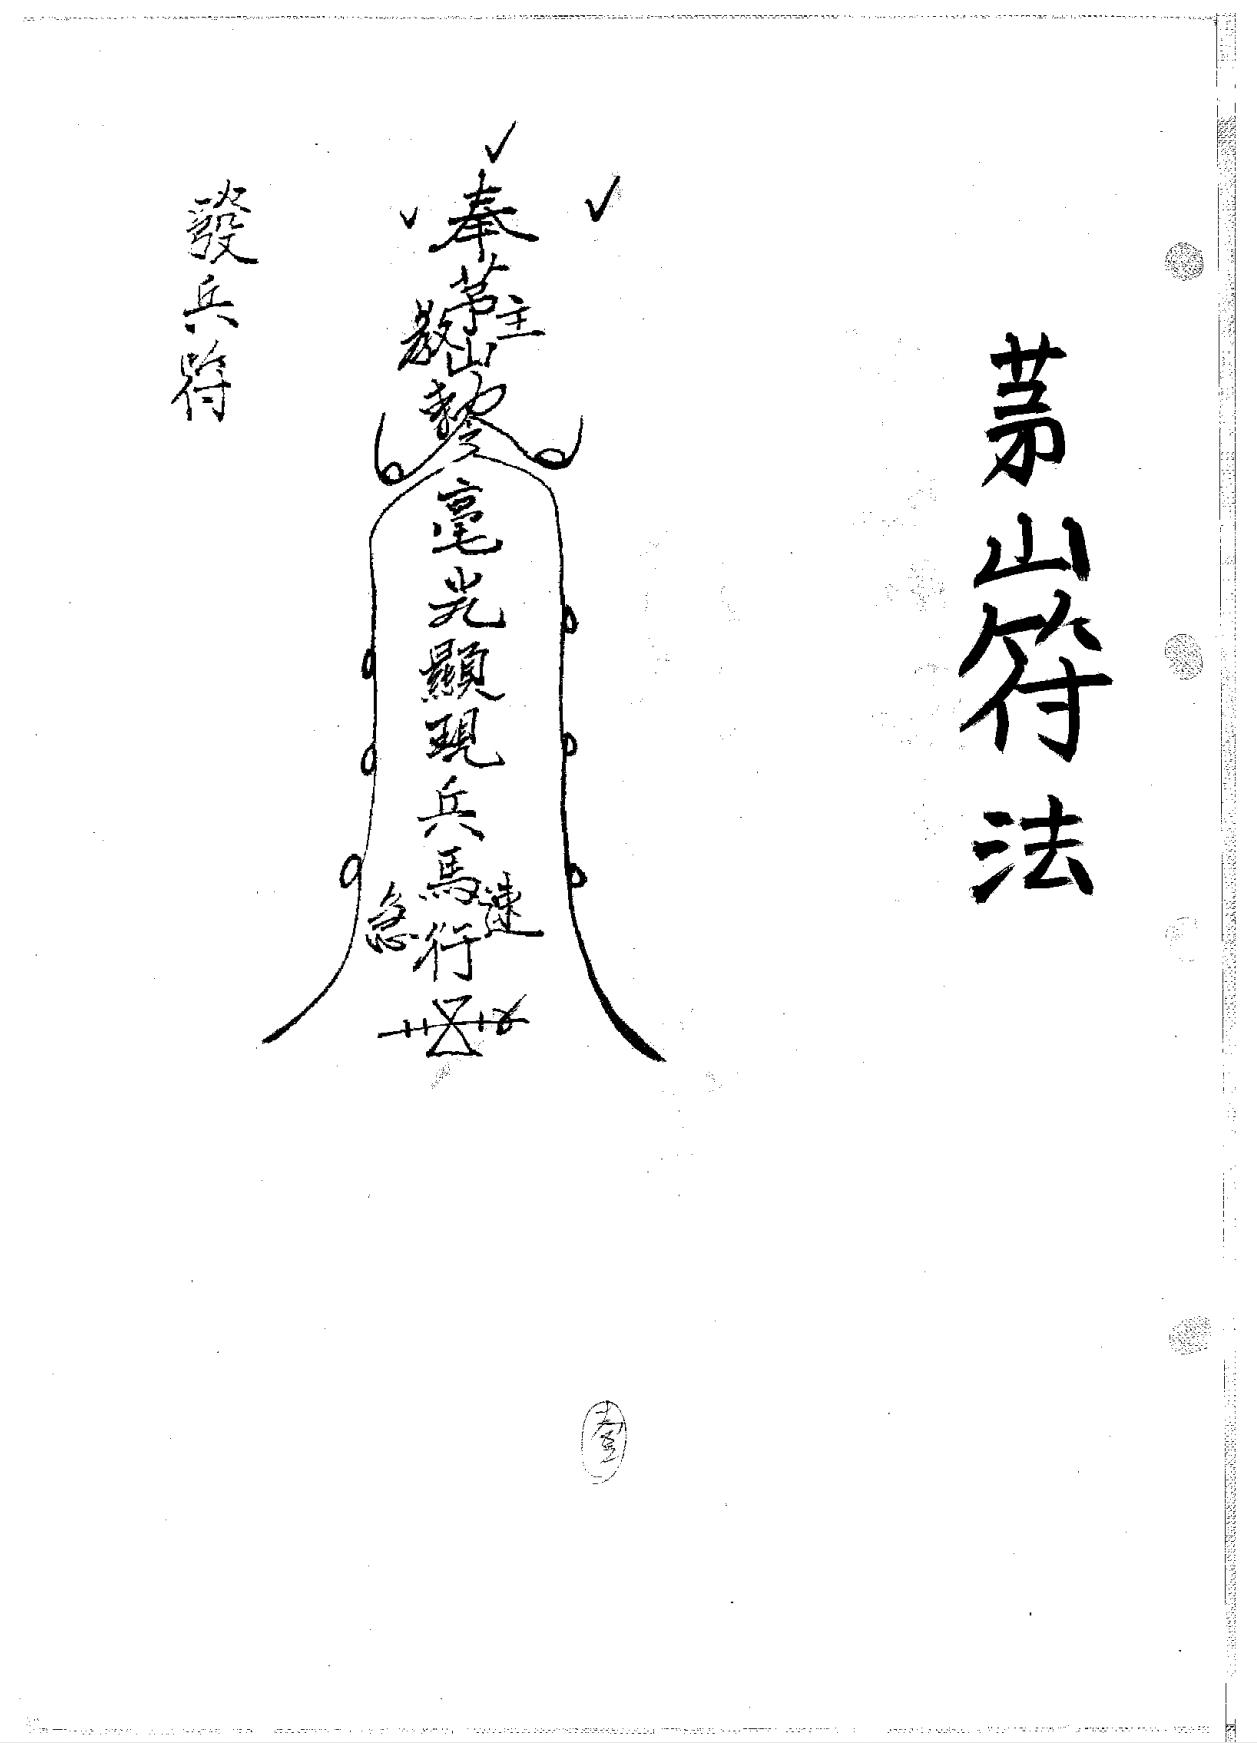 茅山符法
奉
茅山
教主
毫光顯現兵馬行
急速
發兵符
壹